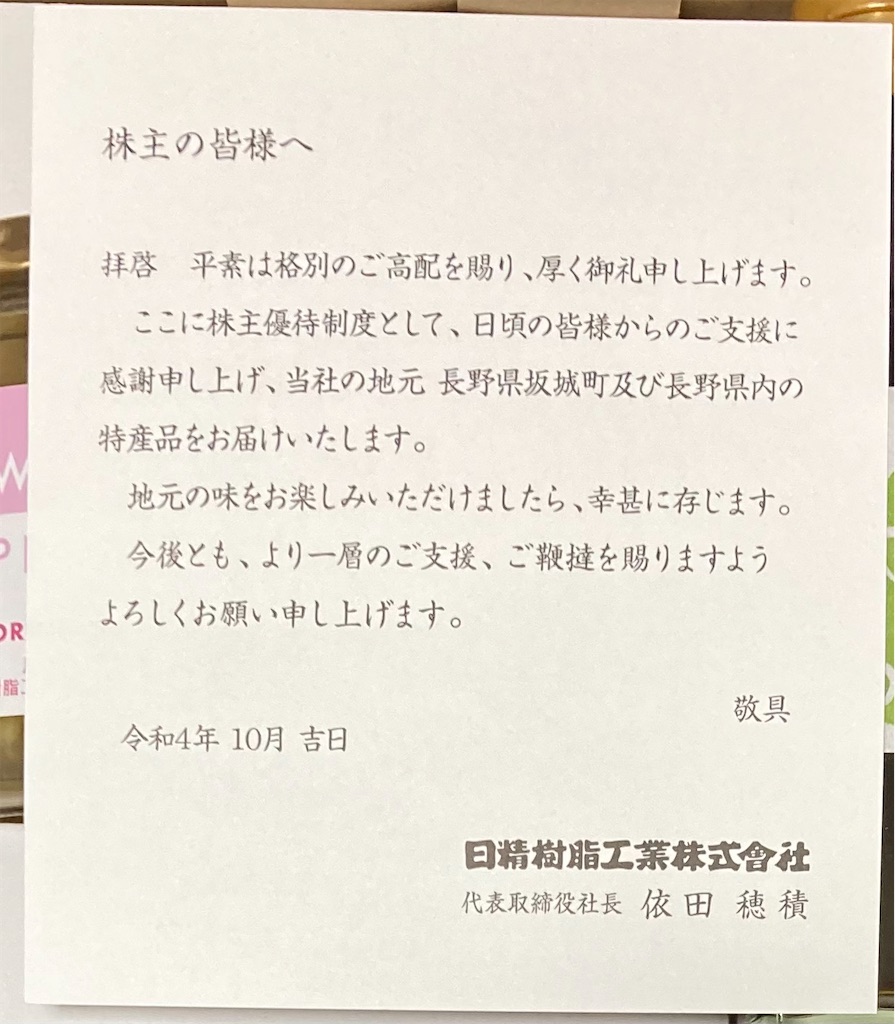 株主の皆様へ
拝啓　平素は格別のご高配を賜り、厚く御礼申し上げます。
ここに株主優待制度として、日頃の皆様からのご支援に
感謝申し上げ、当社の地元 長野県坂城町及び長野県内の
特産品をお届けいたします。
地元の味をお楽しみいただけましたら、幸甚に存じます。
今後とも、より一層のご支援、ご鞭撻を賜りますよう
よろしくお願い申し上げます。
敬具
令和4年 10月 吉日
日精樹脂工業株式會社
代表取締役社長 依田 穂積